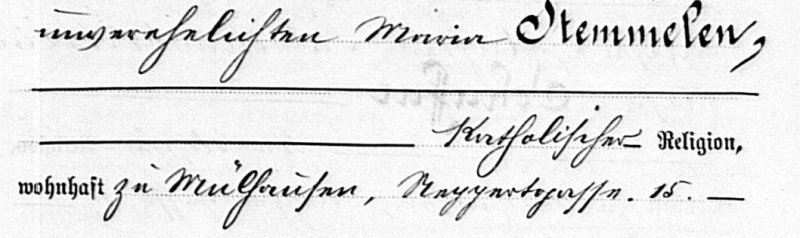 unverehelichten Maria Stemmelen,
katholischer Religion,
wohnhaft zu Mülhausen, Neppertsgasse. 15.